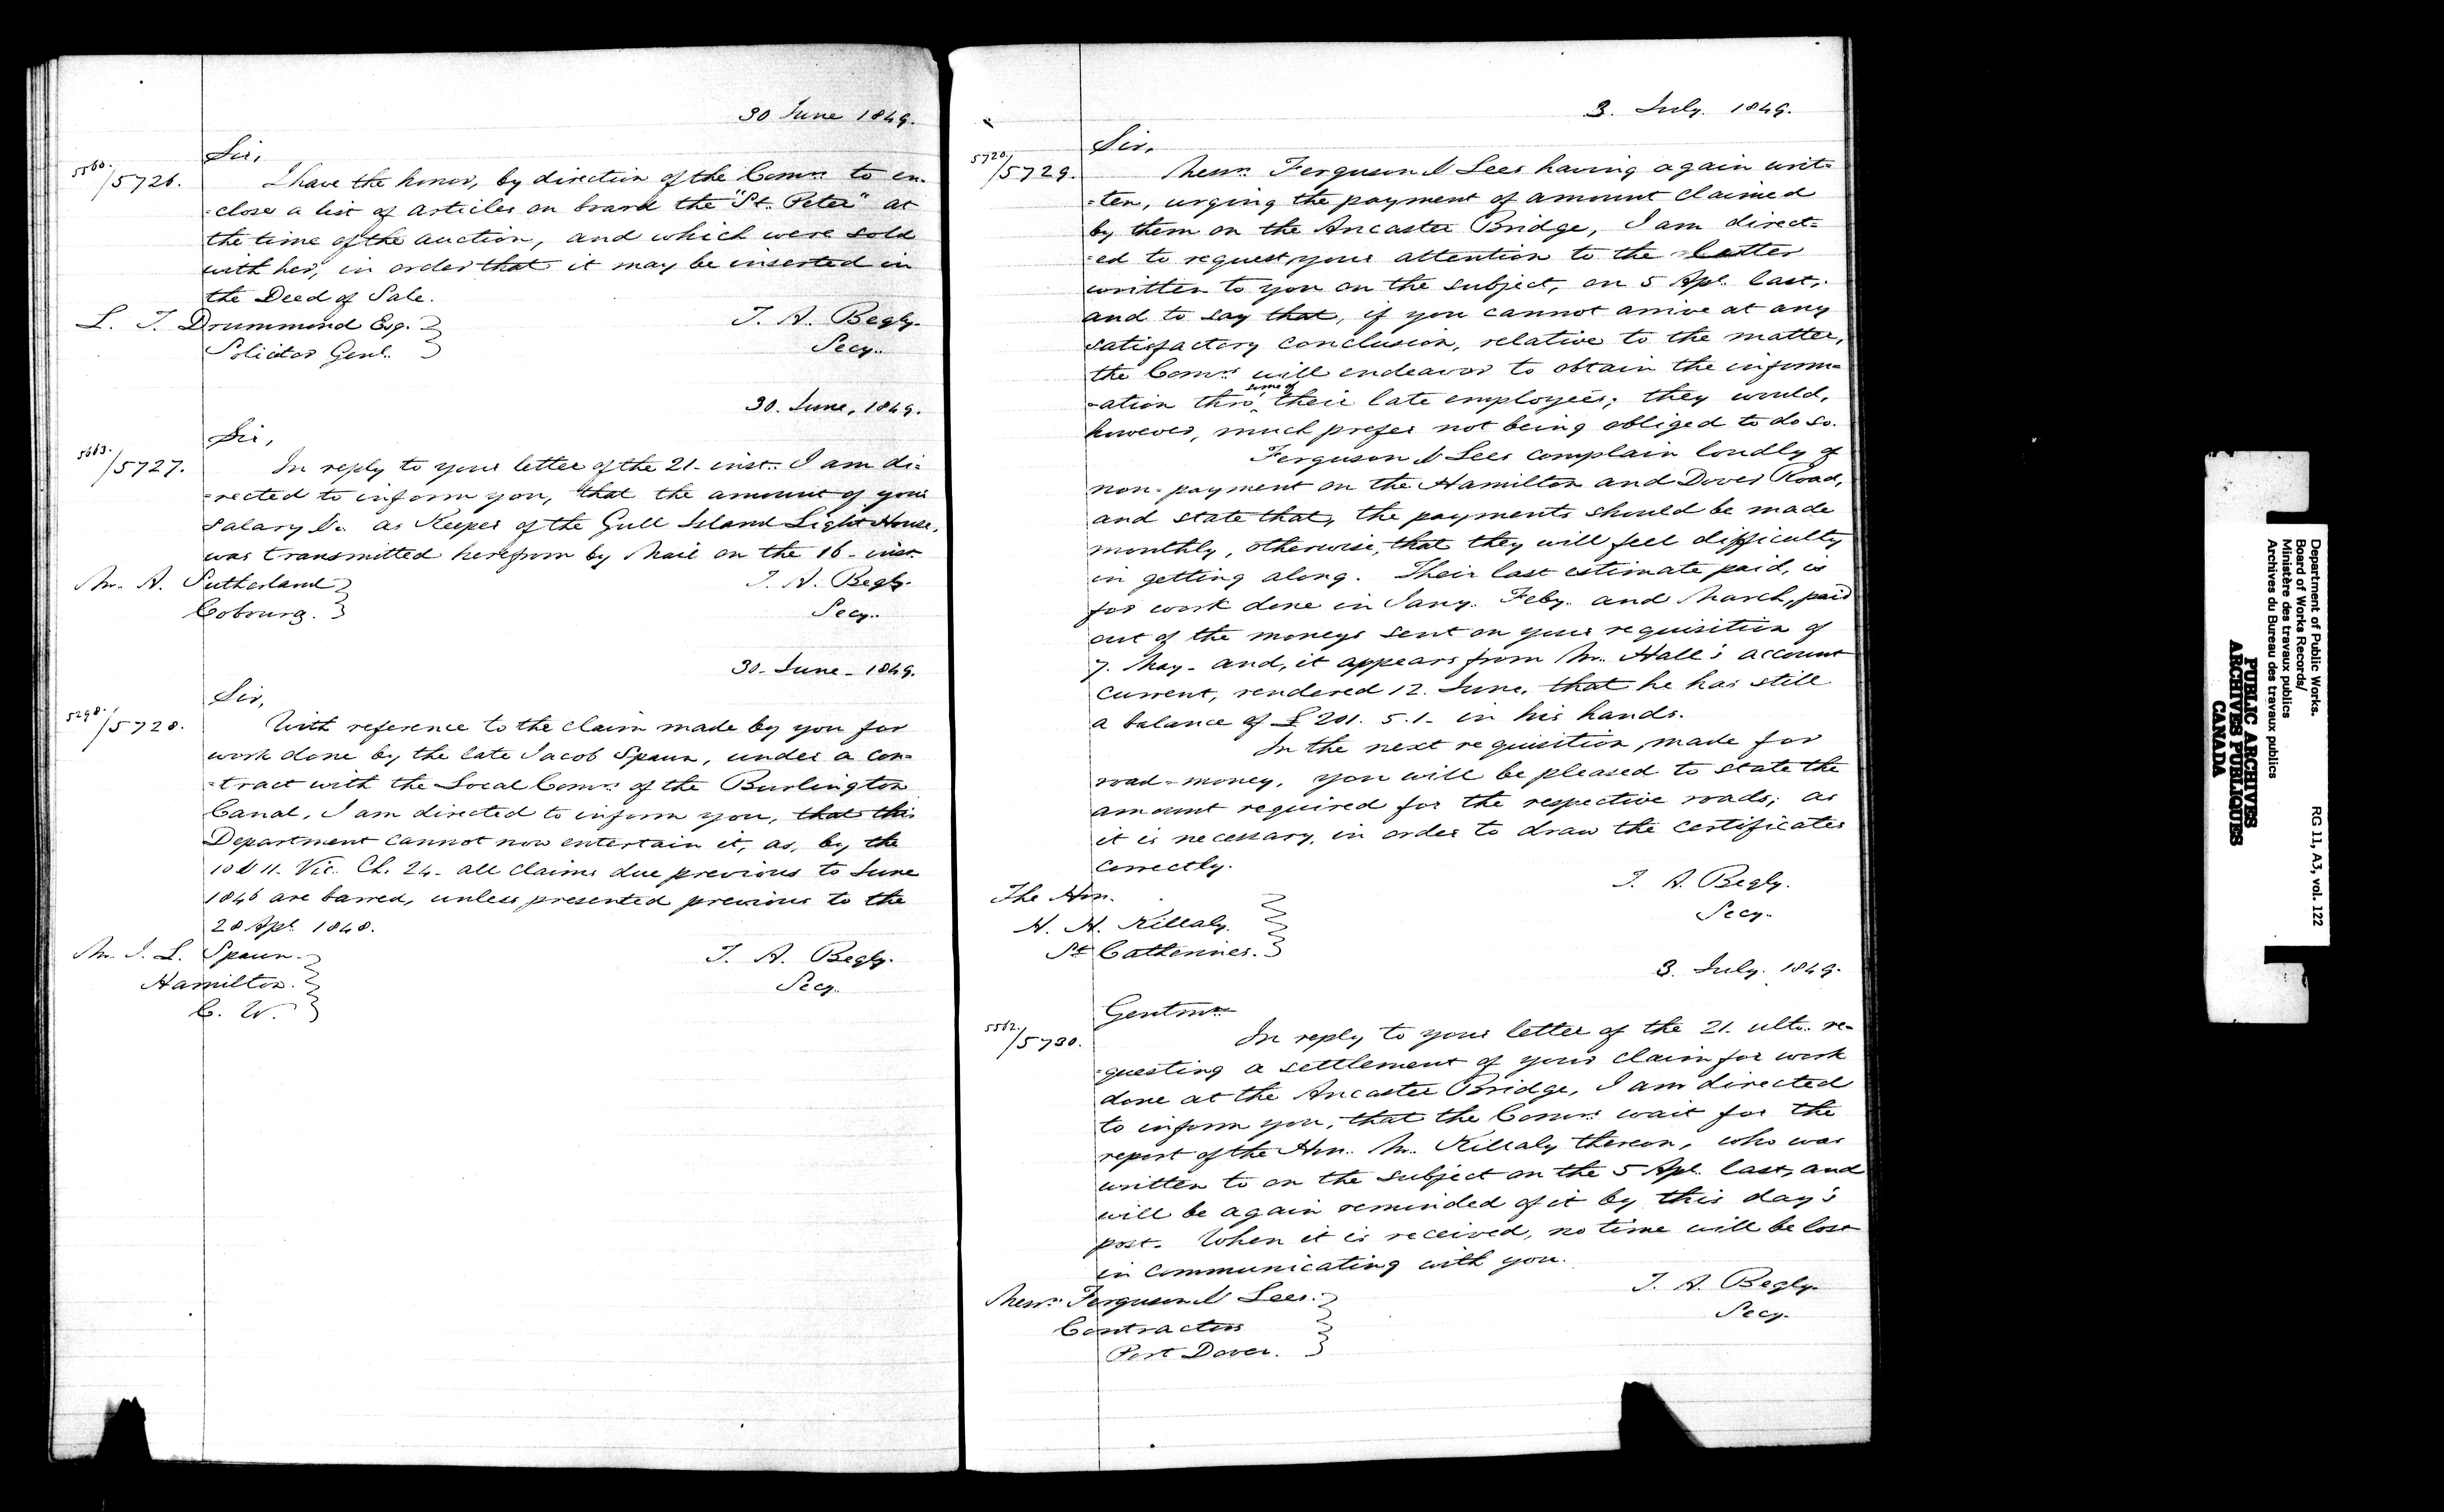 30 June 1849.
Sir,
5560./5726.
I have the honor, by direction of the Comrs. to en-
-close a list of articles on board the "St. Peter" at
the time of the auction, and which were sold
with her, in order that it may be inserted in
the Deed of Sale.
L. T. Drummond Esq.
Solicitor Genl.
T. A. Begly.
Secy.
30. June, 1849.
Sir,
5683./5727.
In reply to your letter of the 21. inst. I am di-
-rected to inform you, that the amount of your
Salary &c. as Keeper of the Gull Island Light House,
was transmitted herefrom by Mail on the 16. inst.
Mr. A. Sutherland
Cobourg.
T. A. Begly.
Secy.
30. June. 1849.
Sir,
5298./5728.
With reference to the claim made by you for
work done by the late Jacob Spaun, under a con-
-tract with the Local Comrs. of the Burlington
Canal, I am directed to inform you, that this
Department cannot now entertain it, as, by the
10 & 11. Vic. Ch. 24. all claims due previous to June
1846 are barred, unless presented previous to the
28 Apl. 1848.
Mr. J. L. Spaun.
Hamilton.
C. W.
T. A. Begly.
Secy.
3. July. 1849.
Sir,
5720/5729.
Messrs. Ferguson & Lees having again writ-
-ten, urging the payment of amount claimed
by them on the Ancaster Bridge, I am direct-
-ed to request your attention to the letter
written to you on the subject, on 5 Apl. last,
and to say that, if you cannot arrive at any
satisfactory conclusion, relative to the matter,
the Comrs. will endeavor to obtain the inform-
-ation thro' some of their late employees; they would,
however, much prefer not being obliged to do so.
Ferguson & Lees complain loudly of
non-payment on the Hamilton and Dover Road,
and state that, the payments should be made
monthly, otherwise, that they will feel difficulty
in getting along. Their last estimate paid, is
for work done in Jany. Feby. and March, paid
out of the moneys sent on your requisition of
7. May. and, it appears from Mr. Hall's account
current, rendered 12. June, that he has still
a balance of £201. 5. 1. in his hands.
In the next requisition, made for
road-money, you will be pleased to state the
amount required for the respective roads; as
it is necessary, in order to draw the certificates
correctly.
The Hon.
H. H. Killaly.
St Catherines.
T. A. Begly.
Secy.
3. July. 1849.
Gentmn.
5562./5730.
In reply to your letter of the 21. ulto. re-
-questing a settlement of your claim for work
done at the Ancaster Bridge, I am directed
to inform you, that the Comrs. wait for the
report of the Hon. Mr. Killaly thereon, who was
written to on the subject on the 5 Apl. last, and
will be again reminded of it by this day's
post. When it is received, no time will be lost
in communicating with you.
Messrs. Ferguson & Lees.
Contractors
Port Dover.
T. A. Begly.
Secy.
Department of Public Works.
Board of Works Records/
Ministère des travaux publics
Archives du Bureau des travaux publics
RG 11, A3, vol. 122
PUBLIC ARCHIVES
ARCHIVES PUBLIQUES
CANADA